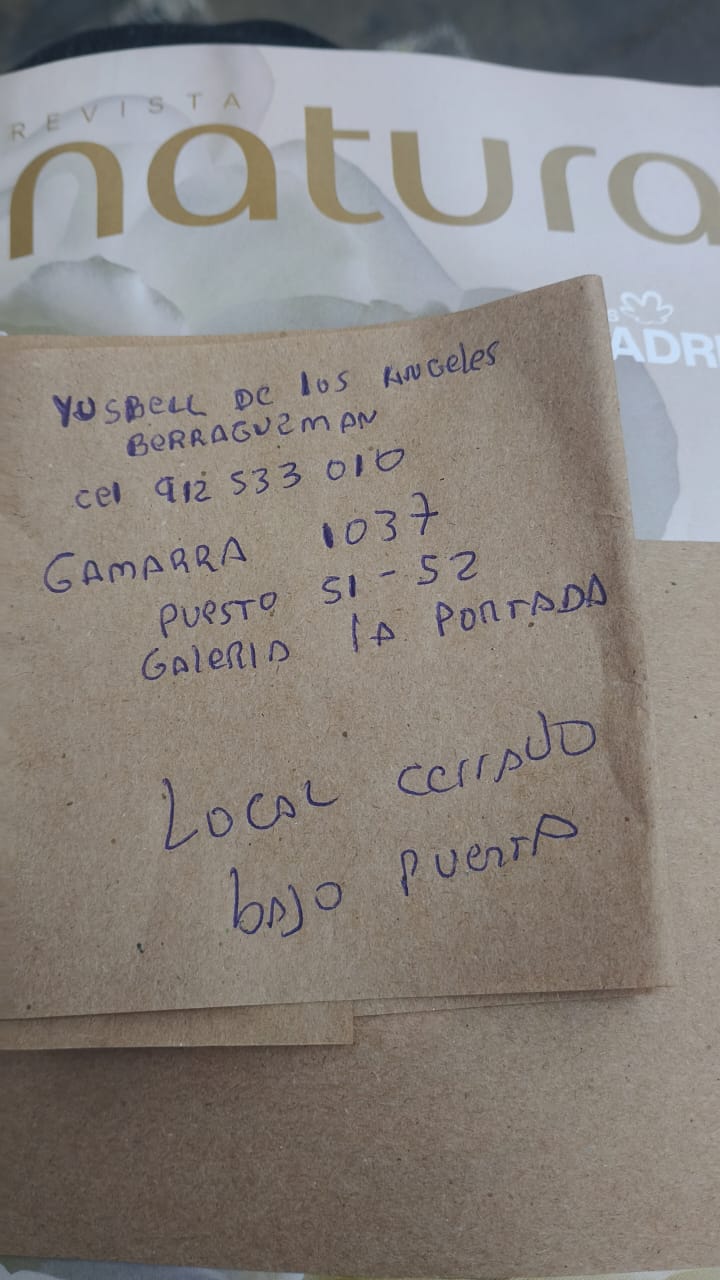 REVISTA
natura
ADR
YUSBELL DE los ANGeles
BERRAGUZMAN
cel 912 533 010
GAMARRA 1037
PUESTO 51-52
GAlERIA lA PORTADA
LOCAL cerrADO
bAJO PUERTA